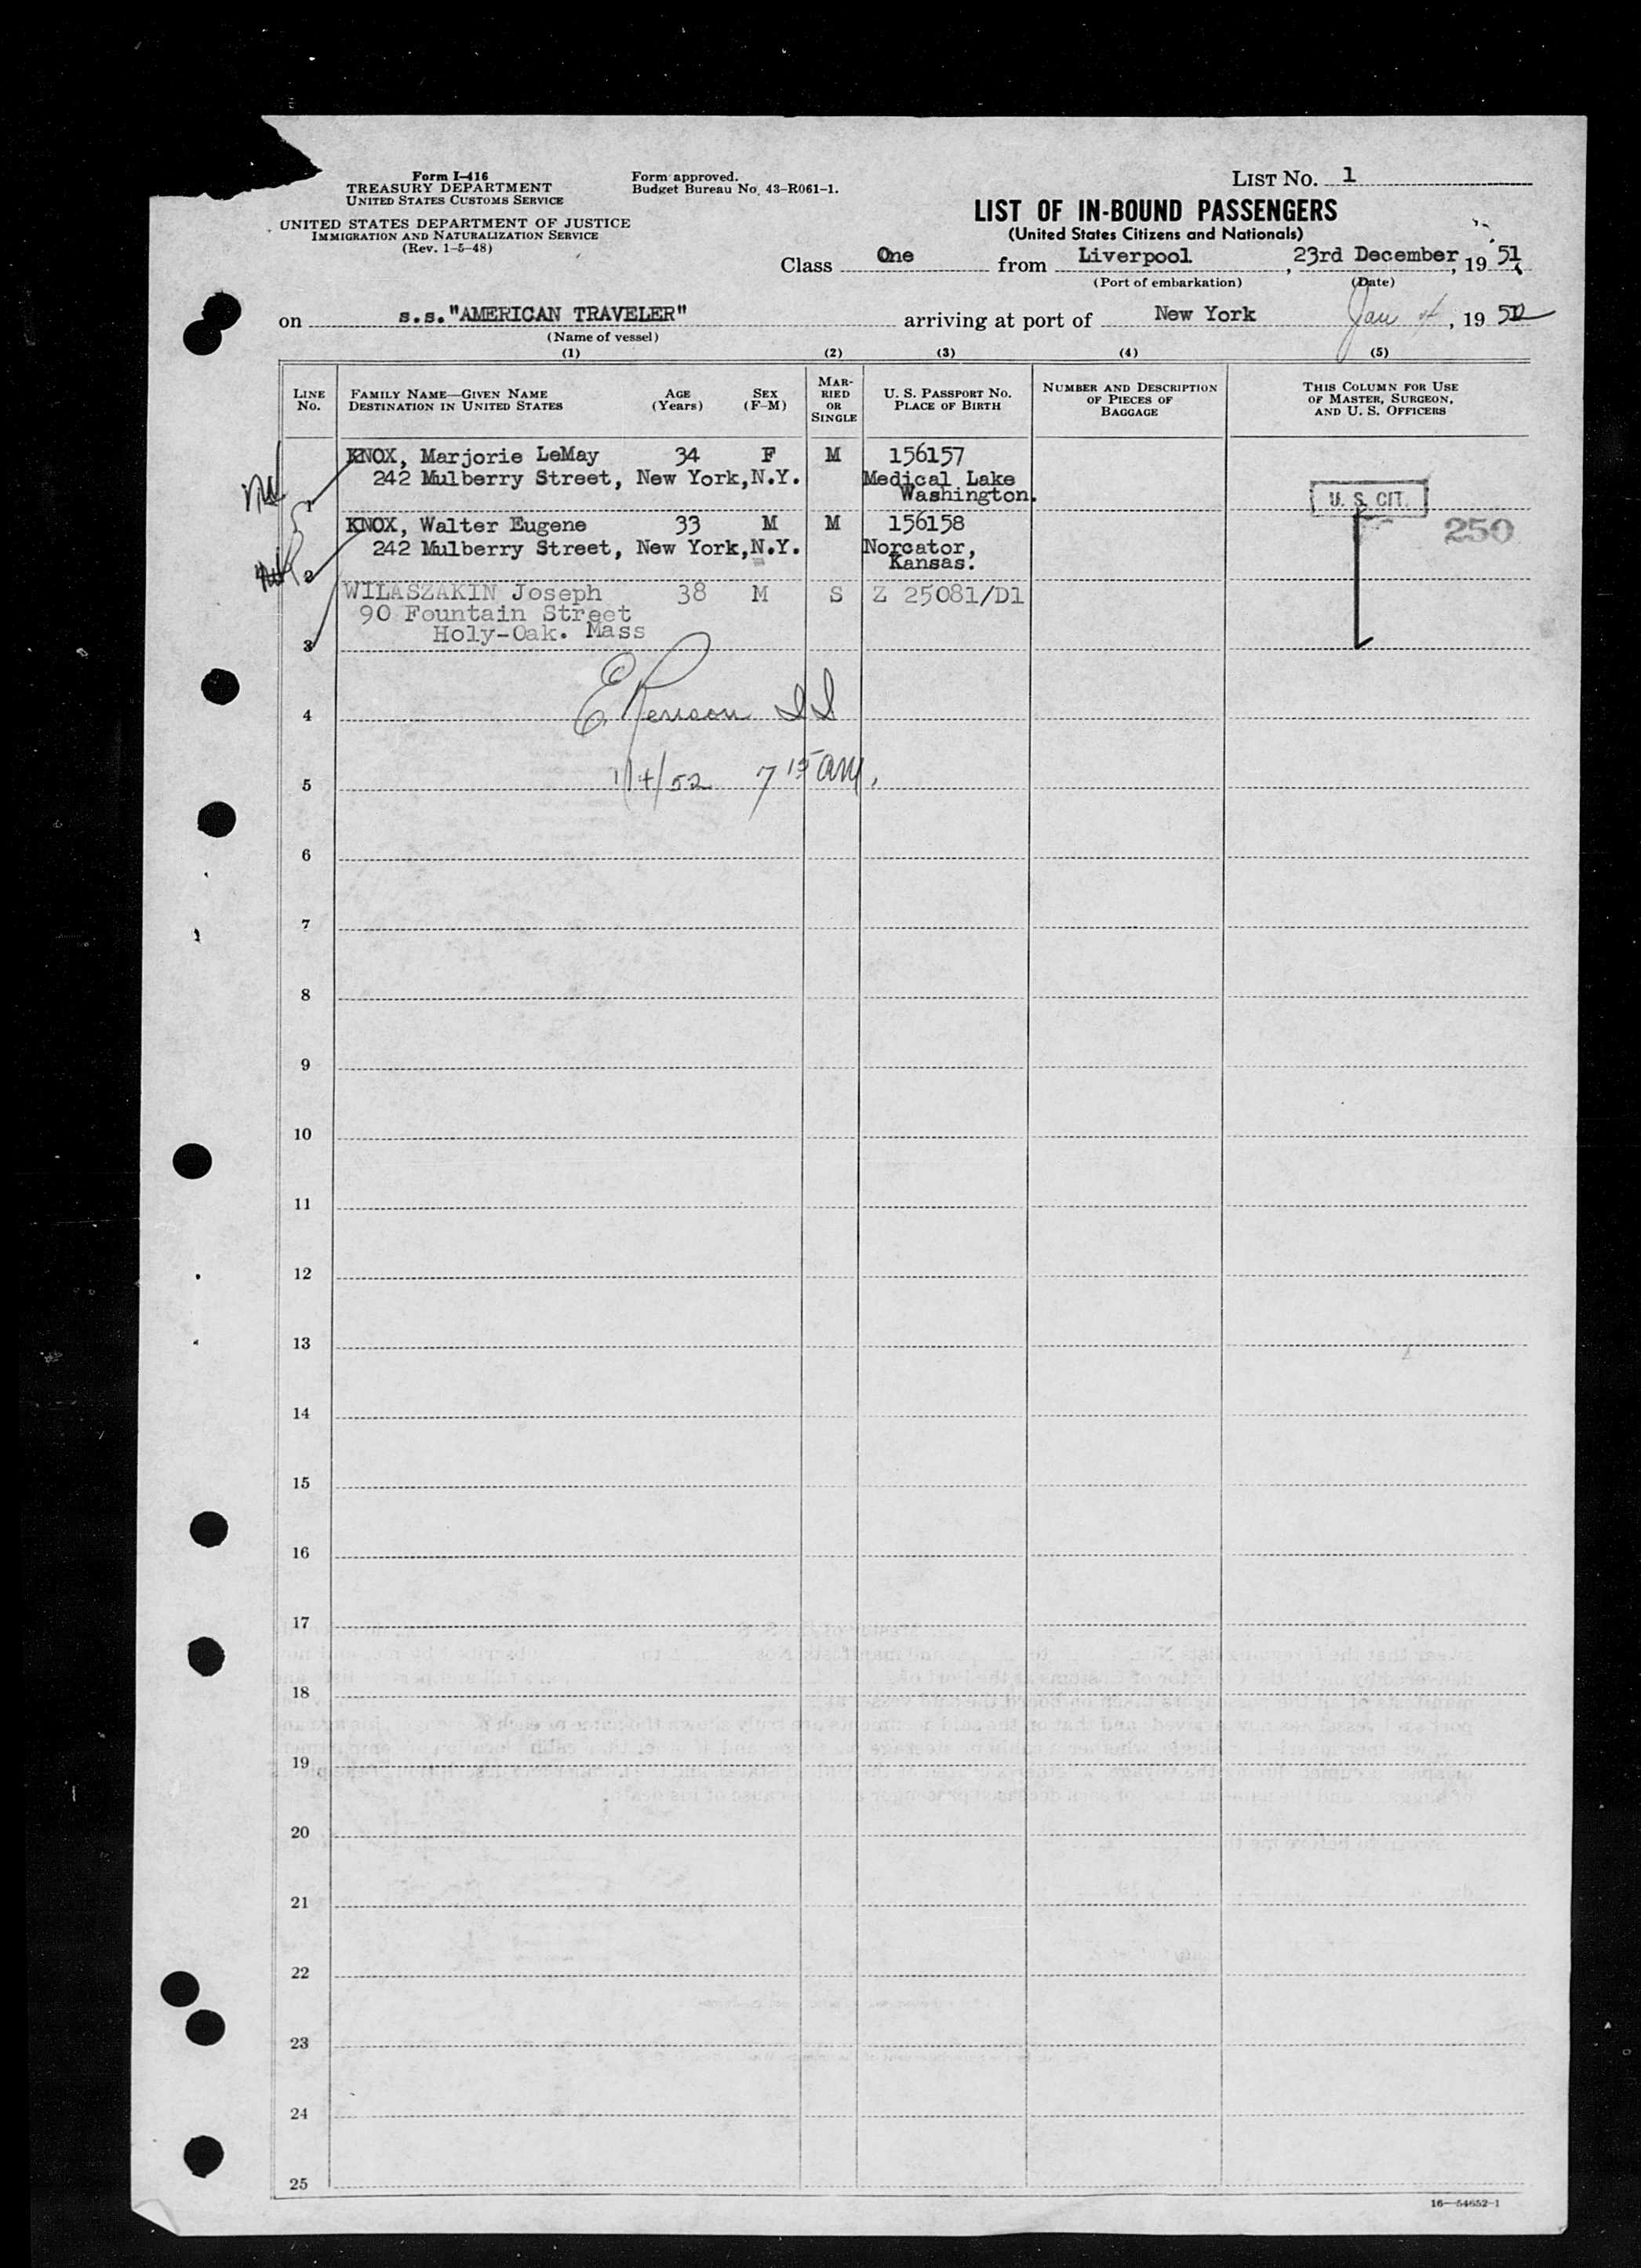 Form I-416
TREASURY DEPARTMENT
UNITED STATES CUSTOMS SERVICE
UNITED STATES DEPARTMENT OF JUSTICE
IMMIGRATION AND NATURALIZATION SERVICE
(Rev. 1-5-48)
Form approved.
Budget Bureau No. 43-R061-1.
LIST No. 1
LIST OF IN-BOUND PASSENGERS
(United States Citizens and Nationals)
Class One from Liverpool, 23rd December, 19 51
(Port of embarkation) (Date)
on s.s."AMERICAN TRAVELER" arriving at port of New York Jan 4, 19 52
(Name of vessel)
(1) (2) (3) (4) (5)
LINE No.
FAMILY NAME—GIVEN NAME
DESTINATION IN UNITED STATES
AGE (Years)
SEX (F-M)
MARRIED OR SINGLE
U. S. PASSPORT No.
PLACE OF BIRTH
NUMBER AND DESCRIPTION OF PIECES OF BAGGAGE
THIS COLUMN FOR USE OF MASTER, SURGEON, AND U. S. OFFICERS
KNOX, Marjorie LeMay 34 F M 156157
242 Mulberry Street, New York, N.Y. Medical Lake
Washington.
1 U. S. CIT.
KNOX, Walter Eugene 33 M M 156158 250
242 Mulberry Street, New York, N.Y. Norcator,
Kansas.
2
WILASZAKIN Joseph 38 M S Z 25081/D1
90 Fountain Street
Holy-Oak. Mass
3
4
1/4/52 7 15 am.
5
6
7
8
9
10
11
12
13
14
15
16
17
18
19
20
21
22
23
24
25
16—54652-1